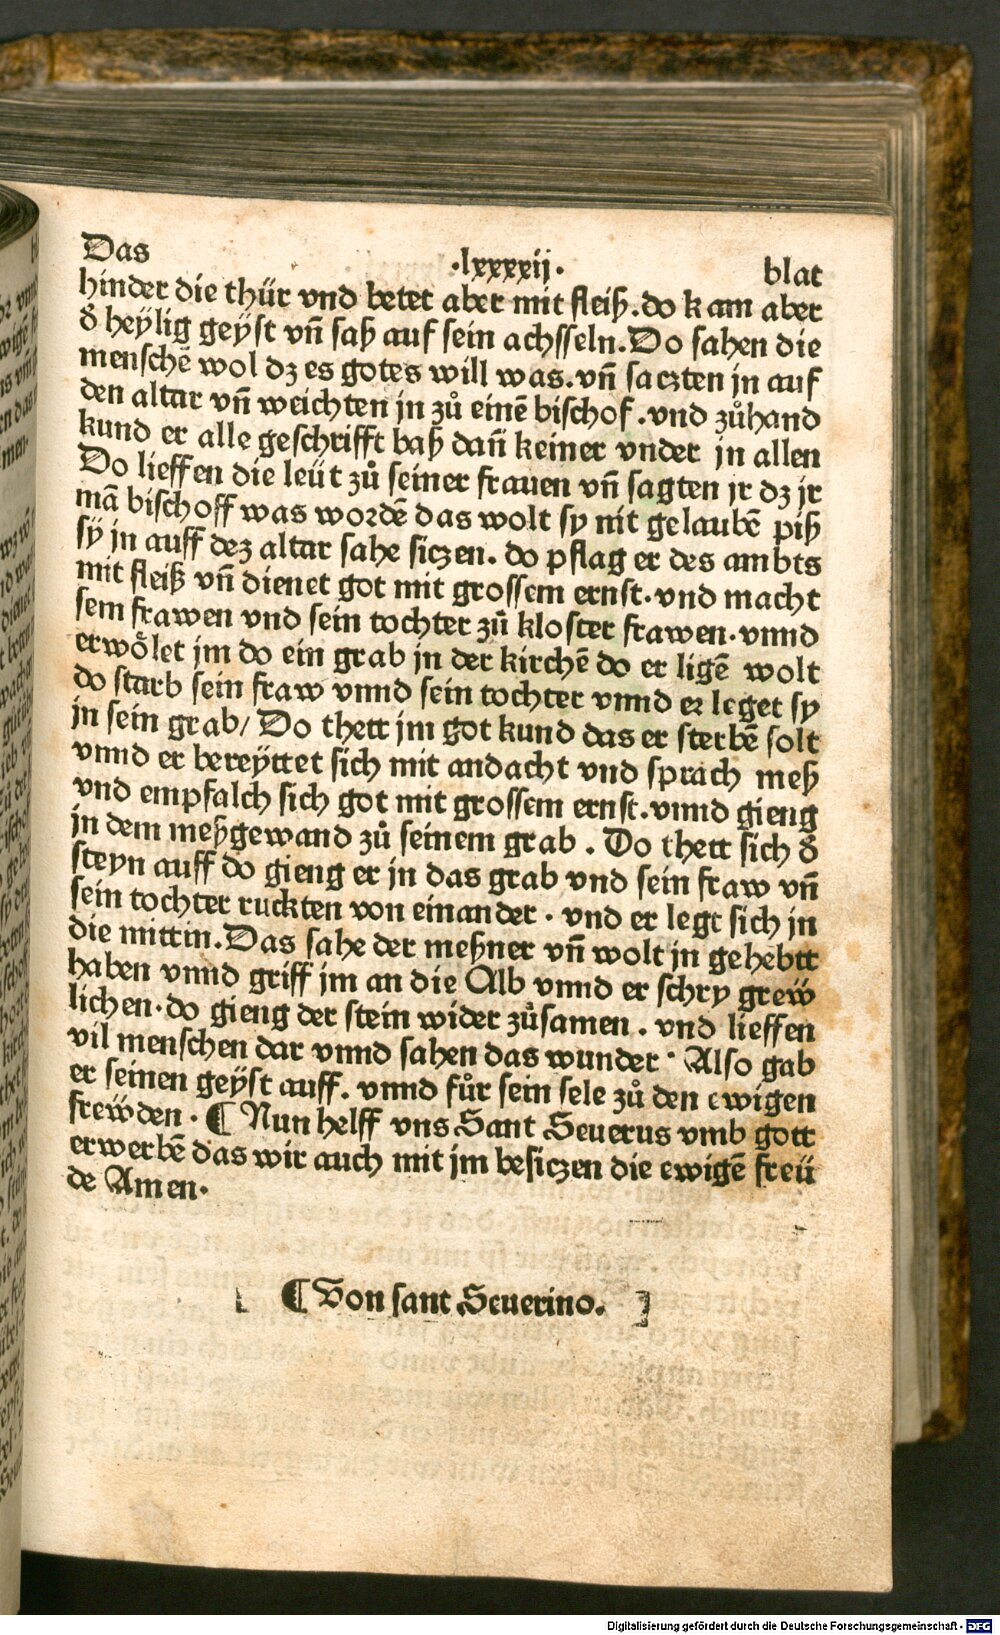 Das ·lxxxxij· blat
hinder die thür vnd betet aber mit fleiß. do kam aber
d̕ heÿlig geÿst vñ saß auf sein achsseln. Do sahen die
menschē wol dz es gotes will was. vñ saczten jn auf
den altar vñ weichten jn zů einē bischof. vnd zůhand
kund er alle geschrifft baß dañ keiner vnder jn allen
Do lieffen die leüt zů seiner frauen vñ sagten jr dz jr
mā bischoff was wordē das wolt sy nit gelaubē piß
sÿ jn auff dez altar sahe siczen. do pflag er des ambts
mit fleiß vñ dienet got mit grossem ernst. vnd macht
sein frawen vnd sein tochter zů kloster frawen. vnnd
erwölet jm do ein grab in der kirchē do er ligē wolt
do starb sein fraw vnnd sein tochter vnnd er leget sy
jn sein grab/ Do thett jm got kund das er sterbē solt
vnnd er bereÿttet sich mit andacht vnd sprach meß
vnd empfalch sich got mit grossem ernst. vnnd gieng
jn dem meßgewand zů seinem grab. Do thett sich d̕
steyn auff do gieng er in das grab vnd sein fraw vñ
sein tochter ruckten von einander. vnd er legt sich jn
die mittin. Das sahe der meßner vñ wolt jn gehebtt
haben vnnd griff jm an die Alb vnnd er schry grew̎
lichen. do gieng der stein wider zůsamen. vnd lieffen
vil menschen dar vnnd sahen das wunder· Also gab
er seinen geÿst auff. vnnd fůr sein sele zů den ewigen
frew̎den. ¶ Nun helff vns Sant Seuerus vmb gott
erwerbē das wir auch mit jm besiczen die ewigē freü
de Amen.
[ ¶ Von sant Seuerino. ]
Digitalisierung gefördert durch die Deutsche Forschungsgemeinschaft - DFG